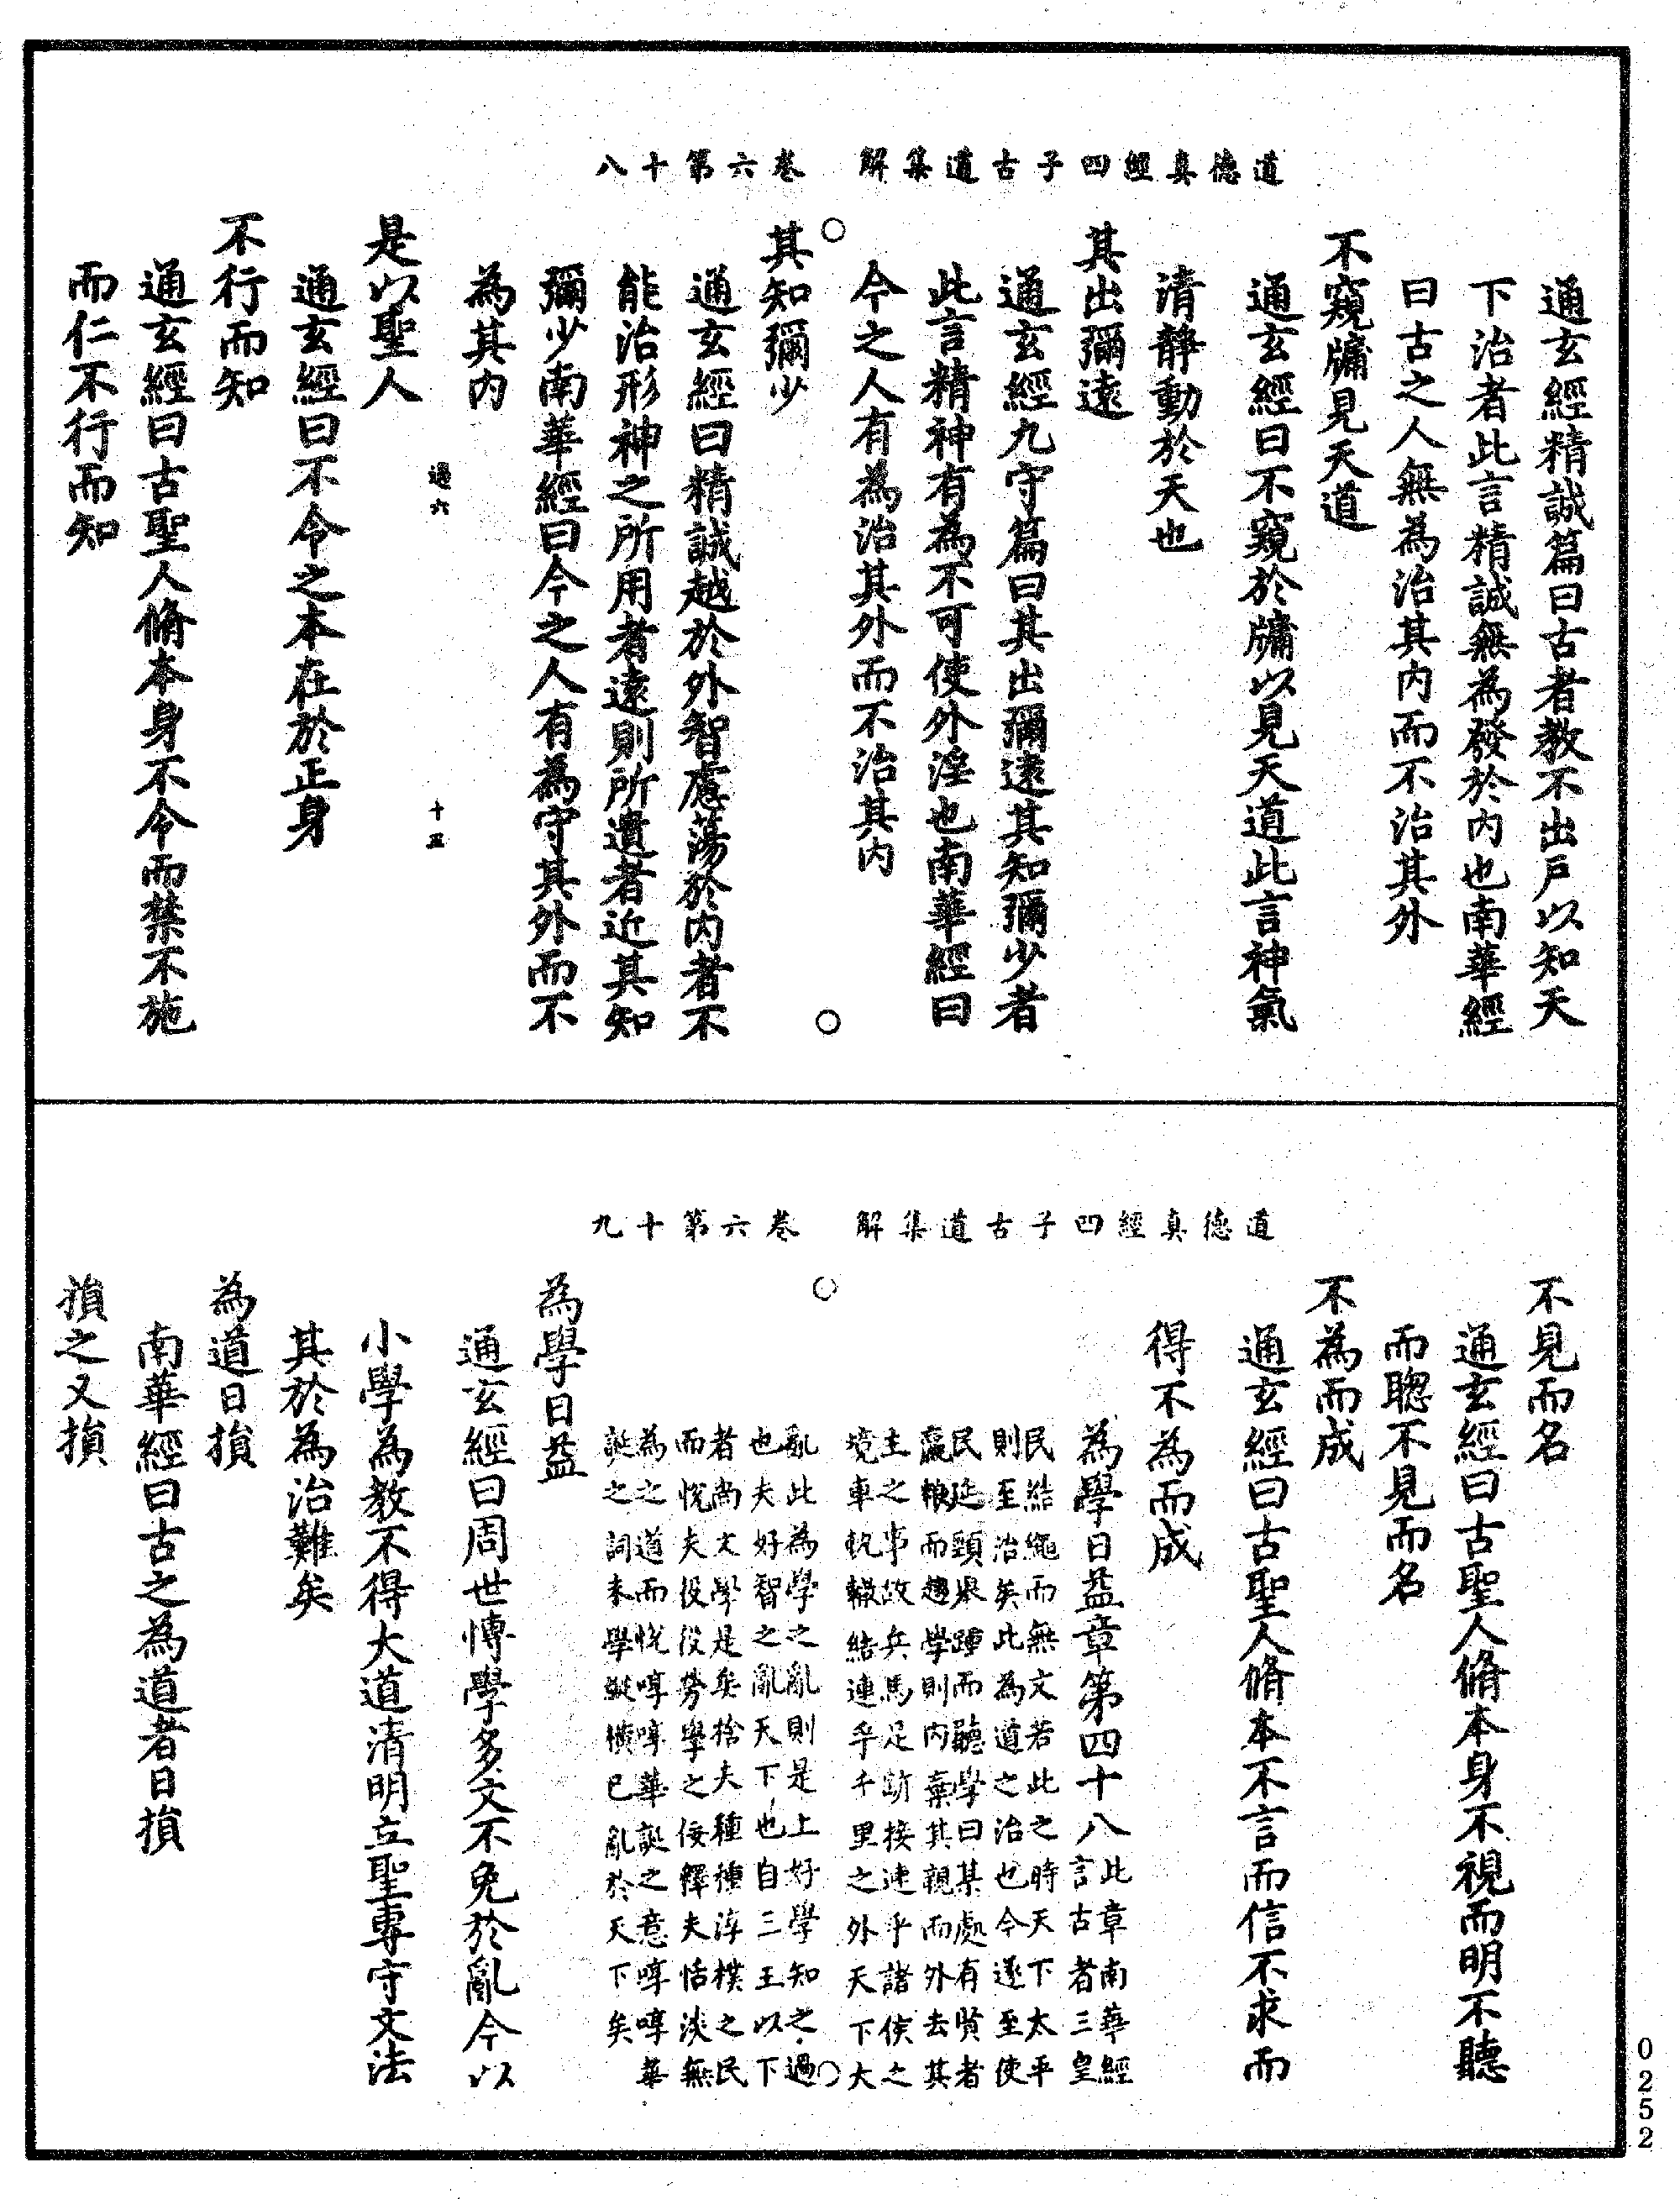 道德真經四子古道集解　卷六第十八
通玄經精誠篇曰古者教不出戶以知天
下治者此言精誠無為發於內也南華經
曰古之人無為治其內而不治其外
不窺牖見天道
通玄經曰不窺於牖以見天道此言神氣
清靜動於天也
其出彌遠
通玄經九守篇曰其出彌遠其知彌少者
此言精神有為不可使外淫也南華經曰
今之人有為治其外而不治其內
其知彌少
通玄經曰精誠越於外智慮蕩於內者不
能治形神之所用者遠則所遺者近其知
彌少南華經曰今之人有為守其外而不
為其內
過六　十五
是以聖人
通玄經曰不令之本在於正身
不行而知
通玄經曰古聖人脩本身不令而禁不施
而仁不行而知
道德真經四子古道集解　卷六第十九
不見而名
通玄經曰古聖人脩本身不視而明不聽
而聰不見而名
不為而成
通玄經曰古聖人脩本不言而信不求而
得不為而成
為學日益章第四十八
此章南華經
言古者三皇
民結繩而無文若此之時天下太平
則至治矣此為道之治也今遂至使
民延頸舉踵而聽學曰某處有賢者
羸糧而趣學則內棄其親而外去其
主之事故兵馬足跡接迹乎諸侯之
境車軌轍結連乎千里之外天下大
亂此為學之亂則是上好學知之過
也夫好智之亂天下也自三王以下
者尚文學是矣捨夫種種淳樸之民
而悅夫役役勞學之佞釋夫恬淡無
為之道而悅啍啍華誕之意啍啍華
誕之詞未學縱橫已亂於天下矣
為學日益
通玄經曰周世博學多文不免於亂今以
小學為教不得大道清明立聖專守文法
其於為治難矣
為道日損
南華經曰古之為道者日損
損之又損
0252